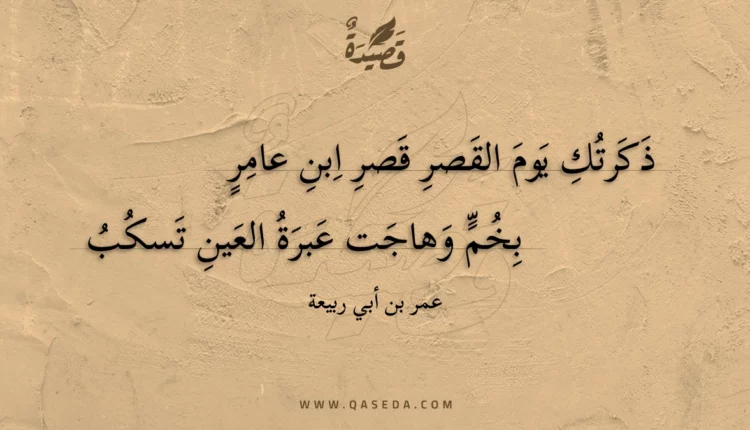 قَصيدَةٌ
ذَكَرتُكِ يَومَ القَصرِ قَصرِ اِبنِ عامِرٍ
بِخُمٍّ وَهاجَت عَبرَةُ العَينِ تَسكُبُ
عمر بن أبي ربيعة
WWW.QASEDA.COM